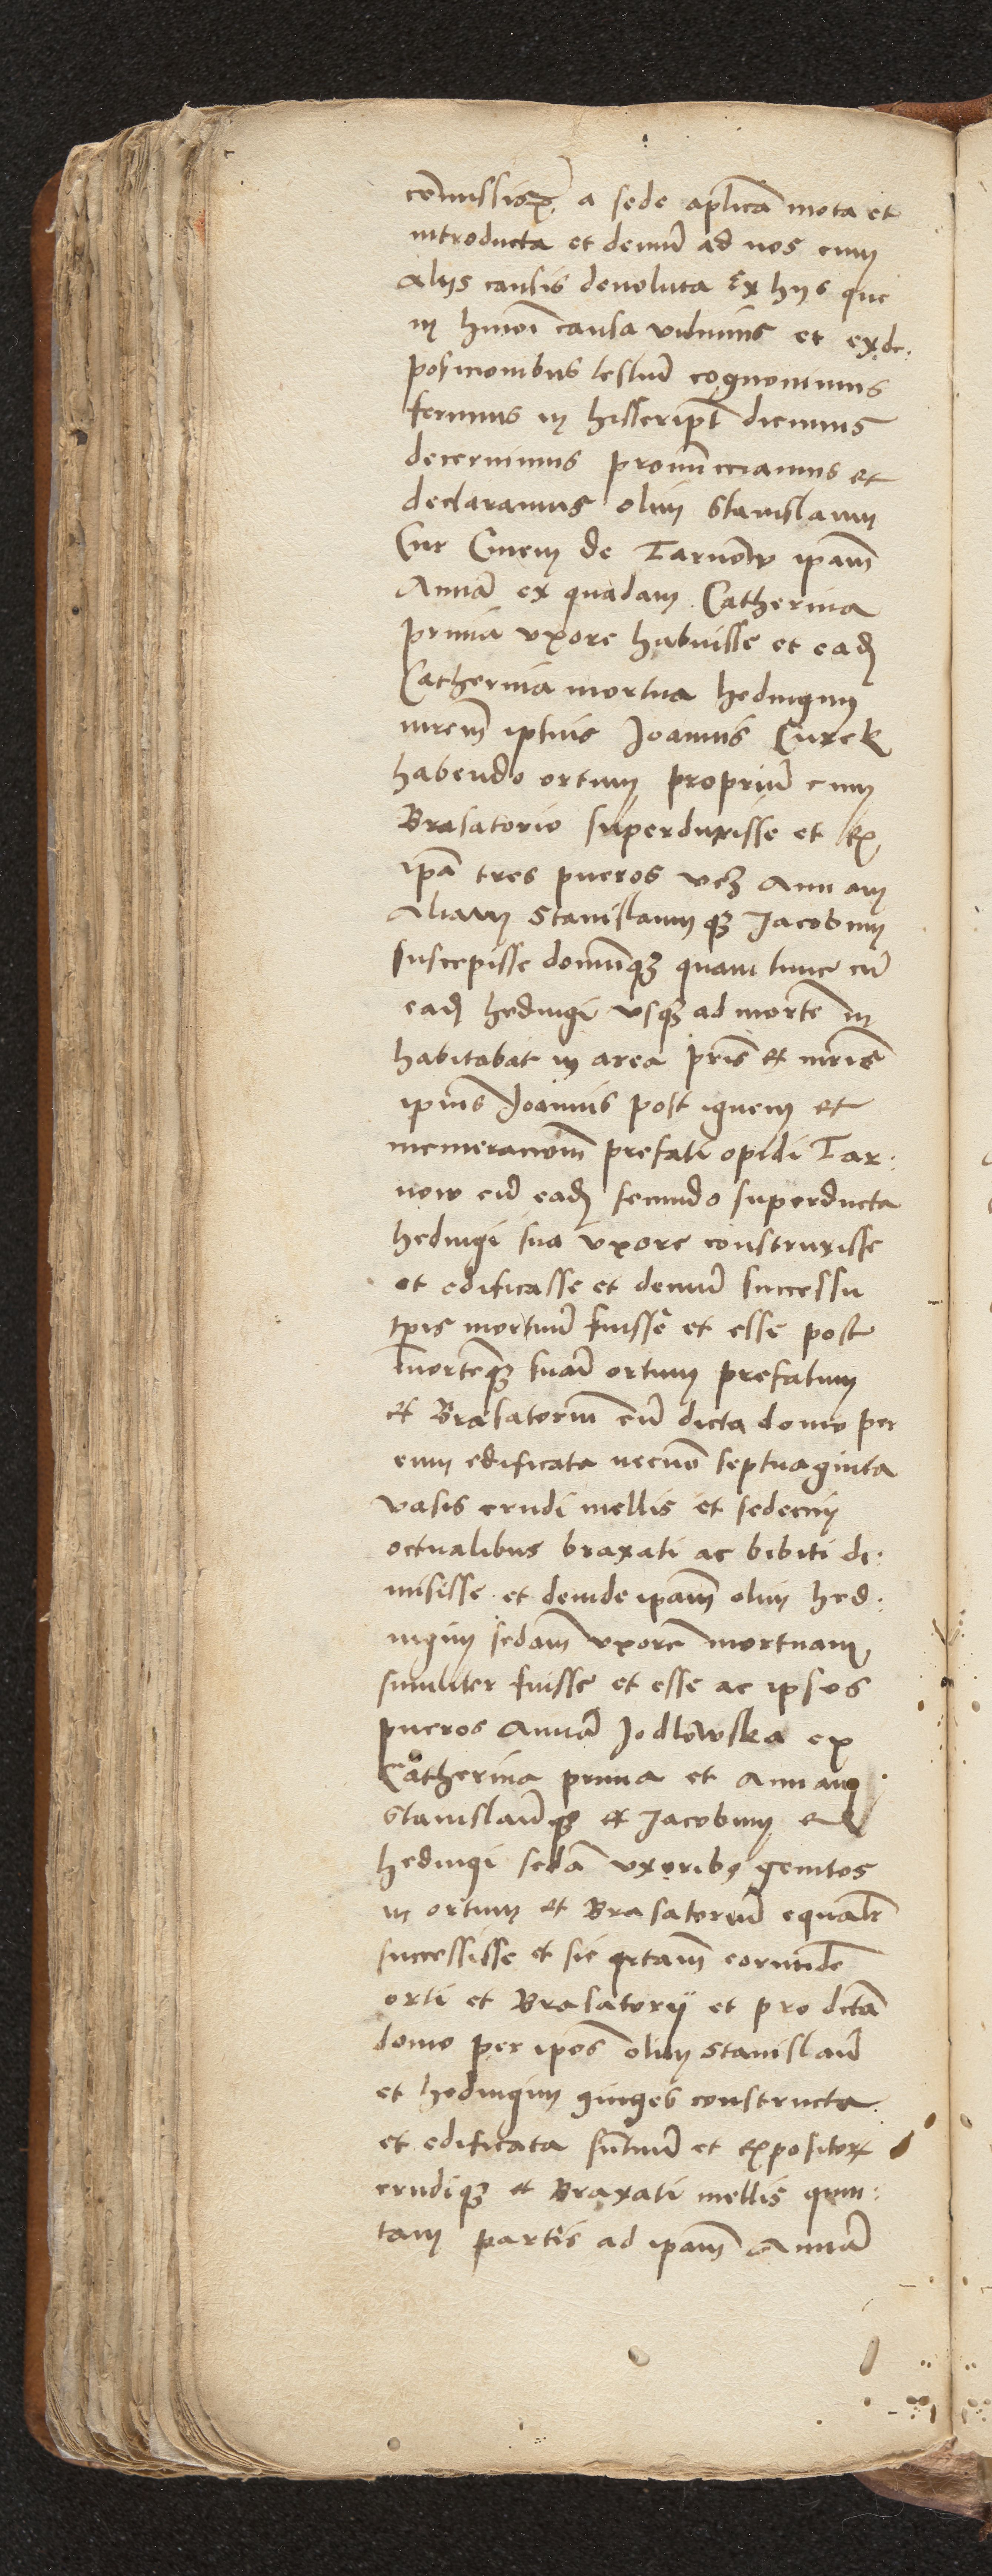 com̄issioꝝ a sede aplicā mota et
introducta et demū ad nos cum
alijs causis devoluta Ex hijs que
in hmōi causa vidimus et ex de:
posicionibus testiū cognovimus
ferimus in hisscript̄ dicimus
decernimus pronūcciamus et
declaramus olim Stanislaum
Civem de Tarnow ipam̄
Annā ex quadam Catherina
prima uxore habuisse et eadꝫ
Catherina mortua hedvigim
mrem̄ ipius Joannis Curek
habendo ortum propriū cum
Brasatorio superduxisse et ex
ipā tres pueros vcꝫ Annam
aliam Stanislaumqꝫ Jacobum
suscepisse domūqꝫ quam tunc cū
eadꝫ hedvigi usqꝫ ad mortē in
habitabat in area pris̄ et mris̄
ipius̄ Joannis post ignem et
incineracionem̄ prefati opidi Tar:
now cū eadꝫ secundo superducta
hedvigi sua uxore construxisse
et edificasse et demū successu
tpis mortuū fuisse et esse post
mortemqꝫ suā ortum prefatum
et Brasatoriū cū dicta domo per
eum edificata necnō septuaginta
vasis crudi mellis et sedecim
octualibus braxati ac bibiti di:
misisse et deinde ipam̄ olim hed:
vigim sedam̄ uxorē mortuam
similiter fuisse et esse ac ipsos
pueros Annā Jodlowska ex
Catherina prima et Annam
Stanislaūqꝫ et Jacobum ex
hedvigi sedā uxoribꝫ genitos
in ortum et Brasatoriū equalr̄
successisse et sic qrtam̄ eorundē
orti et Brasatorij et pro dictā
domo per ipos̄ olim Stanislaū
et hedvigim ꝯiuges constructa
et edificata sūtuū et expositoꝝ
crudiqꝫ et Braxati mellis quin:
tam partis ad ipam̄ Annā